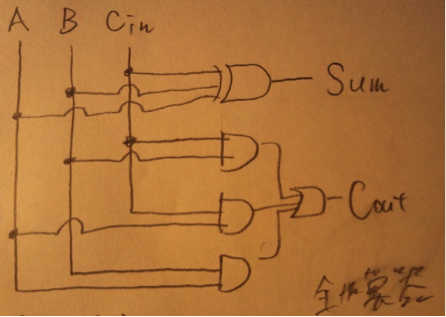 A B Cin
Sum
Cout